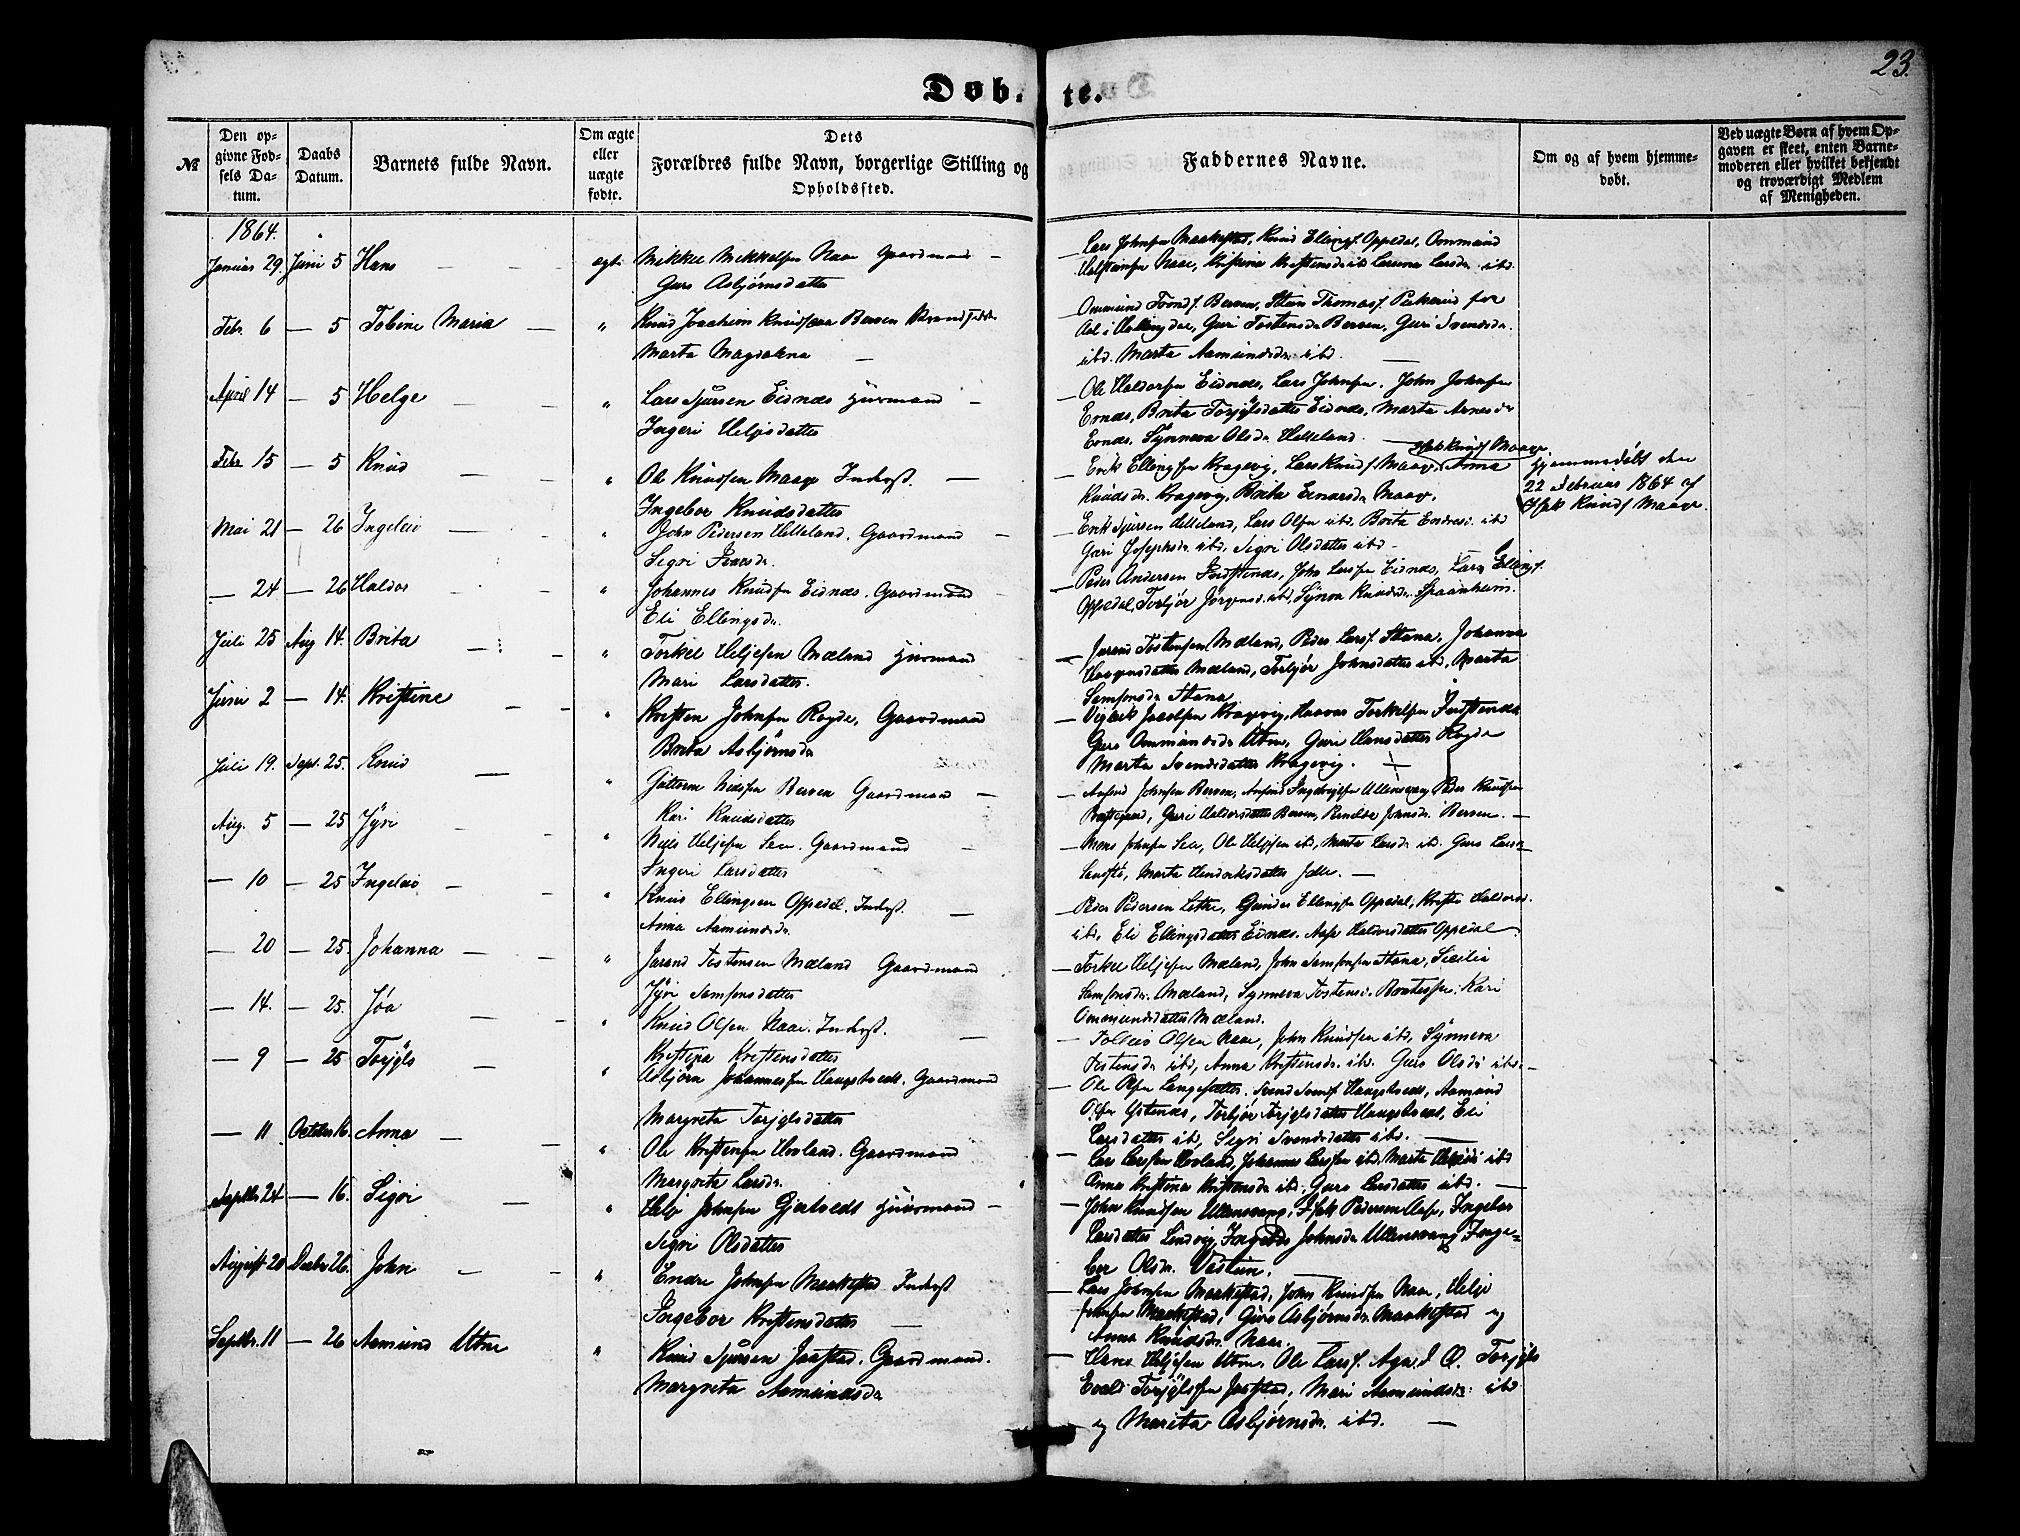 23.
Døb- te.
№
Den op-
givne Fød-
sels Da-
tum.
Daabs
Datum.
Barnets fulde Navn.
Om ægte
eller
uægte
fødte.
Dets
Forældres fulde Navn, borgerlige Stilling og
Opholdssted.
Faddernes Navne.
Om og af hvem hjemme-
døbt.
Ved uægte Børn af hvem Op-
gaven er skeet, enten Barne-
moderen eller hvilket bekjendt
og troværdigt Medlem
af Menigheden.
1864.
Januar 29. Juni 5 Hans — — ægt. Mikkel Mikkelsen Naae Gaardmand —
Guro Asbjörnsdatter
Lars Johnsen Maakestad, Knud Ellings. Oppedal, Ommund
Naae, Kristine Kristensdr ibd Larsdr ibd.
Febr. 6 — 5 Tobine Maria — " Knud Joachim Berven
Marta Magdalena —
Ommund Berven, Stein Thomass. fra
Aal i Hallingdal, Guri Tostensdr Berven, Guri Svendsdr.
ibd. Marta Aamundsdr ibd. —
April 14 — 5 Helge — — " Lars Sjursen Eidnæs Huusmand —
Ingeri Heljesdatter
— Ole Haldorsen Eidnæs, Lars Johnsen, John Johnsen
Ernæs, Brita Torjylsdatter Eidnæs, Marta Arnesdr
Ernæs, Synneva Olsdr Helleland. —
Febr. 15 — 5 Knud — " Ole Knudsen Maage Inderst. —
Ingebor Knudsdatter
Isak Knuds. Maage
— Erik Ellingsen Kragevig, Lars Knuds. Maage, Anna
Knudsdr. Kragevig, Brita Einarsdr Maage.
Hjemmedöbt den
22 Februar 1864 af
Isak Knuds. Maage.
Mai 21 — 26 Ingeleiv — " John Pedersen Helleland. Gaardmand —
Sigri Isaksdr.
— Erik Sjursen Helleland, Lars Olsen ibd. Brita Endresdr. ibd
Guri Josephsdr ibd, Sigri Olsdatter ibd —
— 24 — 26 Haldor — — " Johannes Knudsen Eidnæs. Gaardmand —
Eli Ellingsdr.
— Peder Andersen Ferstenæs, John Larsen Eidnæs, Lars Ellings.
Oppedal, Torbjör Jörgensd. ibd, Synva Knudsdr. Spaanheim.
Juli 25 Aug 14. Brita — — " Torkel Heljesen Mæland Huusmand
Mari Larsdatter.
— Jarand Tostensen Mæland, Peder Larss. Stana, Johanna
Haagensdatter Mæland, Torbjör Johnsdatter ibd, Marta
Samsonsdr Stana
Juni 2 — 14. Kristine — — " Kristen Johnsen Rogde, Gaardmand
Brita Asbjörnsdr
— Vigleik Jacobsen Kragevig, Haavar Torkelsen Ferstenæs
Guro Ommundsdr Utne, Guri Hansdatter Rogde
Marta Svendsdatter Kragevig. —
Juli 19. Sept. 25. Knud — " Guttorm Nielsen Berven Gaardmand —
Kari Knudsdatter
— Johnsen Berven, Ullensvang Peder Knudsen
Guri Haldorsdatter Berven, Johnsdr. Berven. —
Aug. 5 — 25 Jyri — — " Niels Heljesen Sexe. Gaardmand —
Ingeri Larsdatter
— Mons Johnsen Sexe, Ole Heljesen ibd, Marta Larsdr ibd. Guro Larsdr
Marta Hendriksdatter —
— 10 — 25 Ingeleiv — — " Knud Ellingsen Oppedal. Inderst. —
Anna Aamundsdr
— Peder Pedersen Lothe, Gunder Ellingsen Oppedal, Kristi Haldorsd.
ibd. Eli Ellingsdatter Eidnæs. Aase Haldorsdatter Oppedal
— 20 — 25. Johanna — — " Jarand Tostensen Mæland Gaardmand
Jyri Samsonsdatter
— Torkel Heljesen Mæland, John Samsonsen Stana, Sisilia
Samsonsdr. Mæland, Synneva Tostensdr. Kari
Ommundsdatter Mæland.
— 14. — 25. Joa — — " Knud Olsen Naae. Inderst. —
Kristina Kristensdatter
— Tolleiv Olsen Naae, John Knudsen ibd, Synneva
Tostensdr ibd, Anna Kristensdr. ibd. Guro Olsdr ibd. —
— 9 — 25 Torjyls — " Asbjörn Johannesen Haugstvedt. Gaardmand
Margreta Torjylsdatter
— Ole Olsen Langesæter. Haugstvedt, Aamund
Olsen Ystenæs, Torbjör Torjylsdatter Haugstvedt, Eli
Larsdatter ibd, Sigri Svendsdatter ibd. —
— 11 October 16. Anna — — " Ole Kristensen Hovland. Gaardmand
Margreta Larsdr.
— Lars Larsen Hovland, Johannes Larsen ibd. Marta ibd
Anna Kristina Kristensdr ibd. Guro Larsdatter ibd. —
Septbr. 24 — 16. Sigri — " Helje Johnsen Gjertvedt Huusmand —
Sigri Olsdatter
— John Knudsen Ullensvang, Isak Pedersen Aase, Ingebor
Larsdatter Lindvig, Ingebor Johnsdr Ullensvang Inge-
bor Olsdr. —
August 20 Decbr 26. John — — " Endre Johnsen Maakestad Inderst
Ingebor Kristensdatter —
— Lars Johnsen Maakestad, John Knudsen Naae, Helje
Johnsen Maakestad, Guro Asbjörnsdr. Maakestad og
Anna Knudsdr. Naae.
Septbr. 11 — 26 Aamund Utne " Knud Sjursen Jaastad. Gaardmand.
Margreta Aamundsdr
— Hans Heljesen Utne, Ole Larss. Aga, Torjyls
Torjylssen Jaastad, Mari Aamundsdr. ibd
og Marita Asbjörnsdr. ibd. —